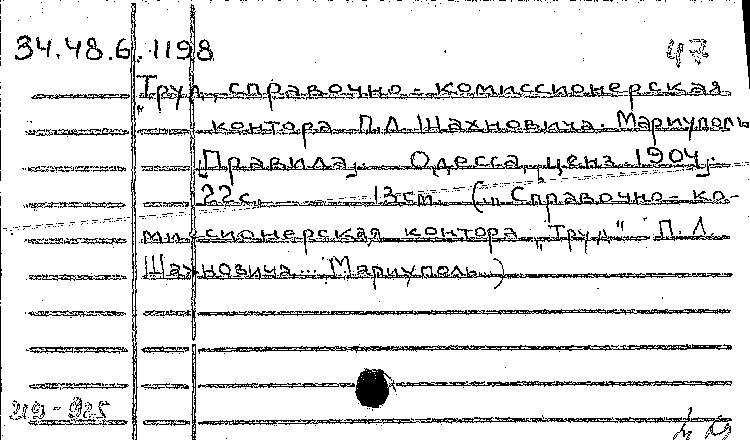 34.48.6.1198
47
„Труд, справочно-комиссионерская
контора П.Л. Шахновича. Мариуполь
[Правила]. Одесса, ценз. 1904].
22 с. 13 см. (... Справочно-ко-
миссионерская контора „Труд" П.Л.
Шахновича... Мариуполь)
219-925